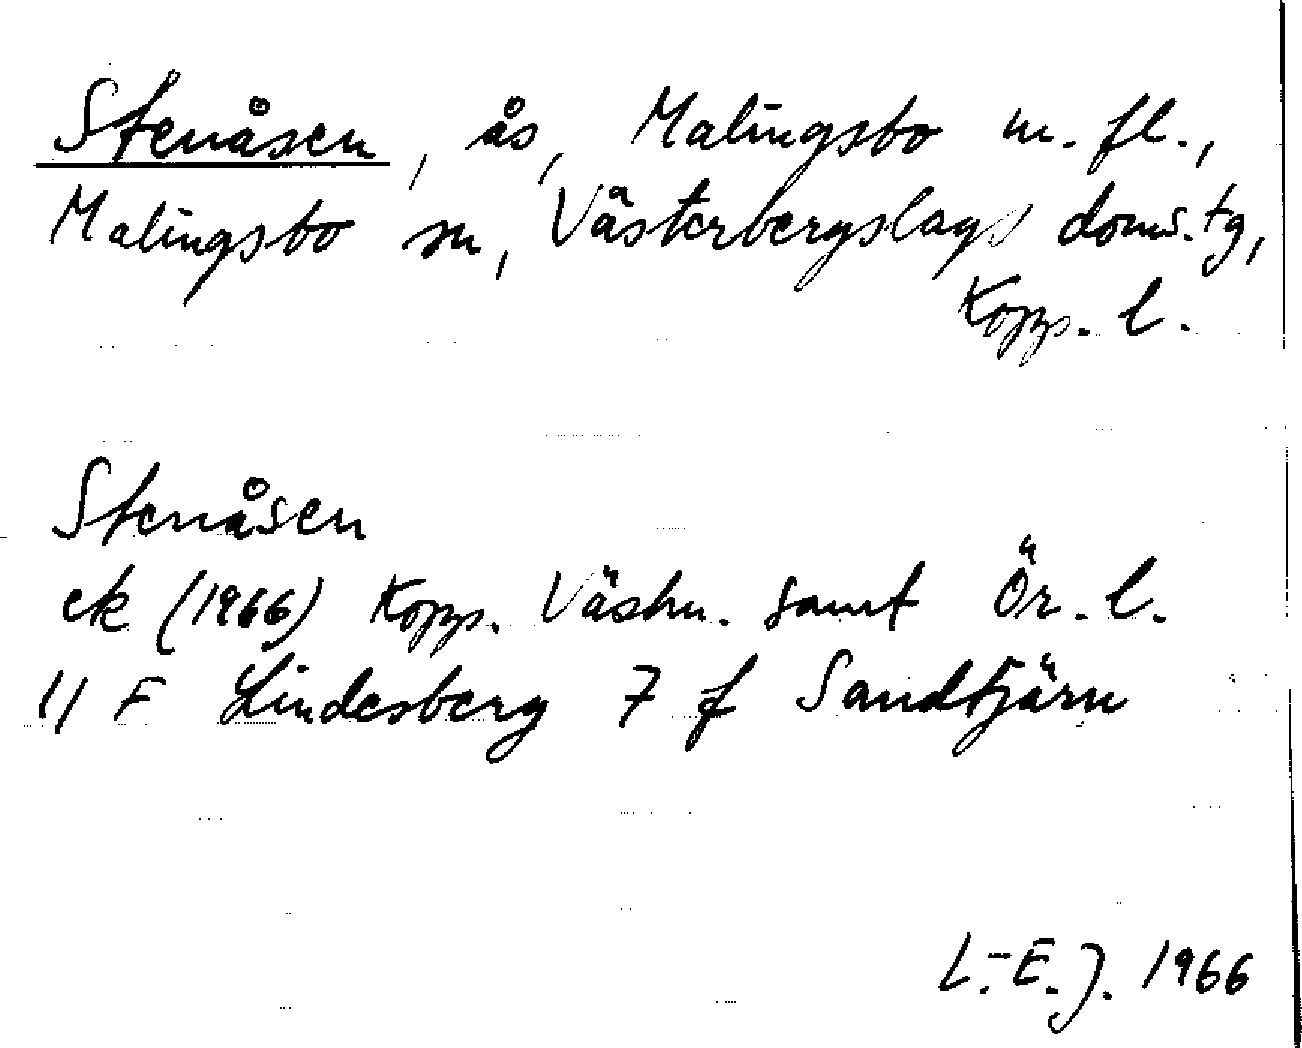 Stenåsen, ås, Malingsbo m. fl.,
Malingsbo sn, Västerbergslags doms.tg,
Kopp. l.
Stenåsen
ek (1966) Kopp. Västm. samt Ör. l.
11 F Lindesberg 7 f Sandtjärn
L.-E. J. 1966